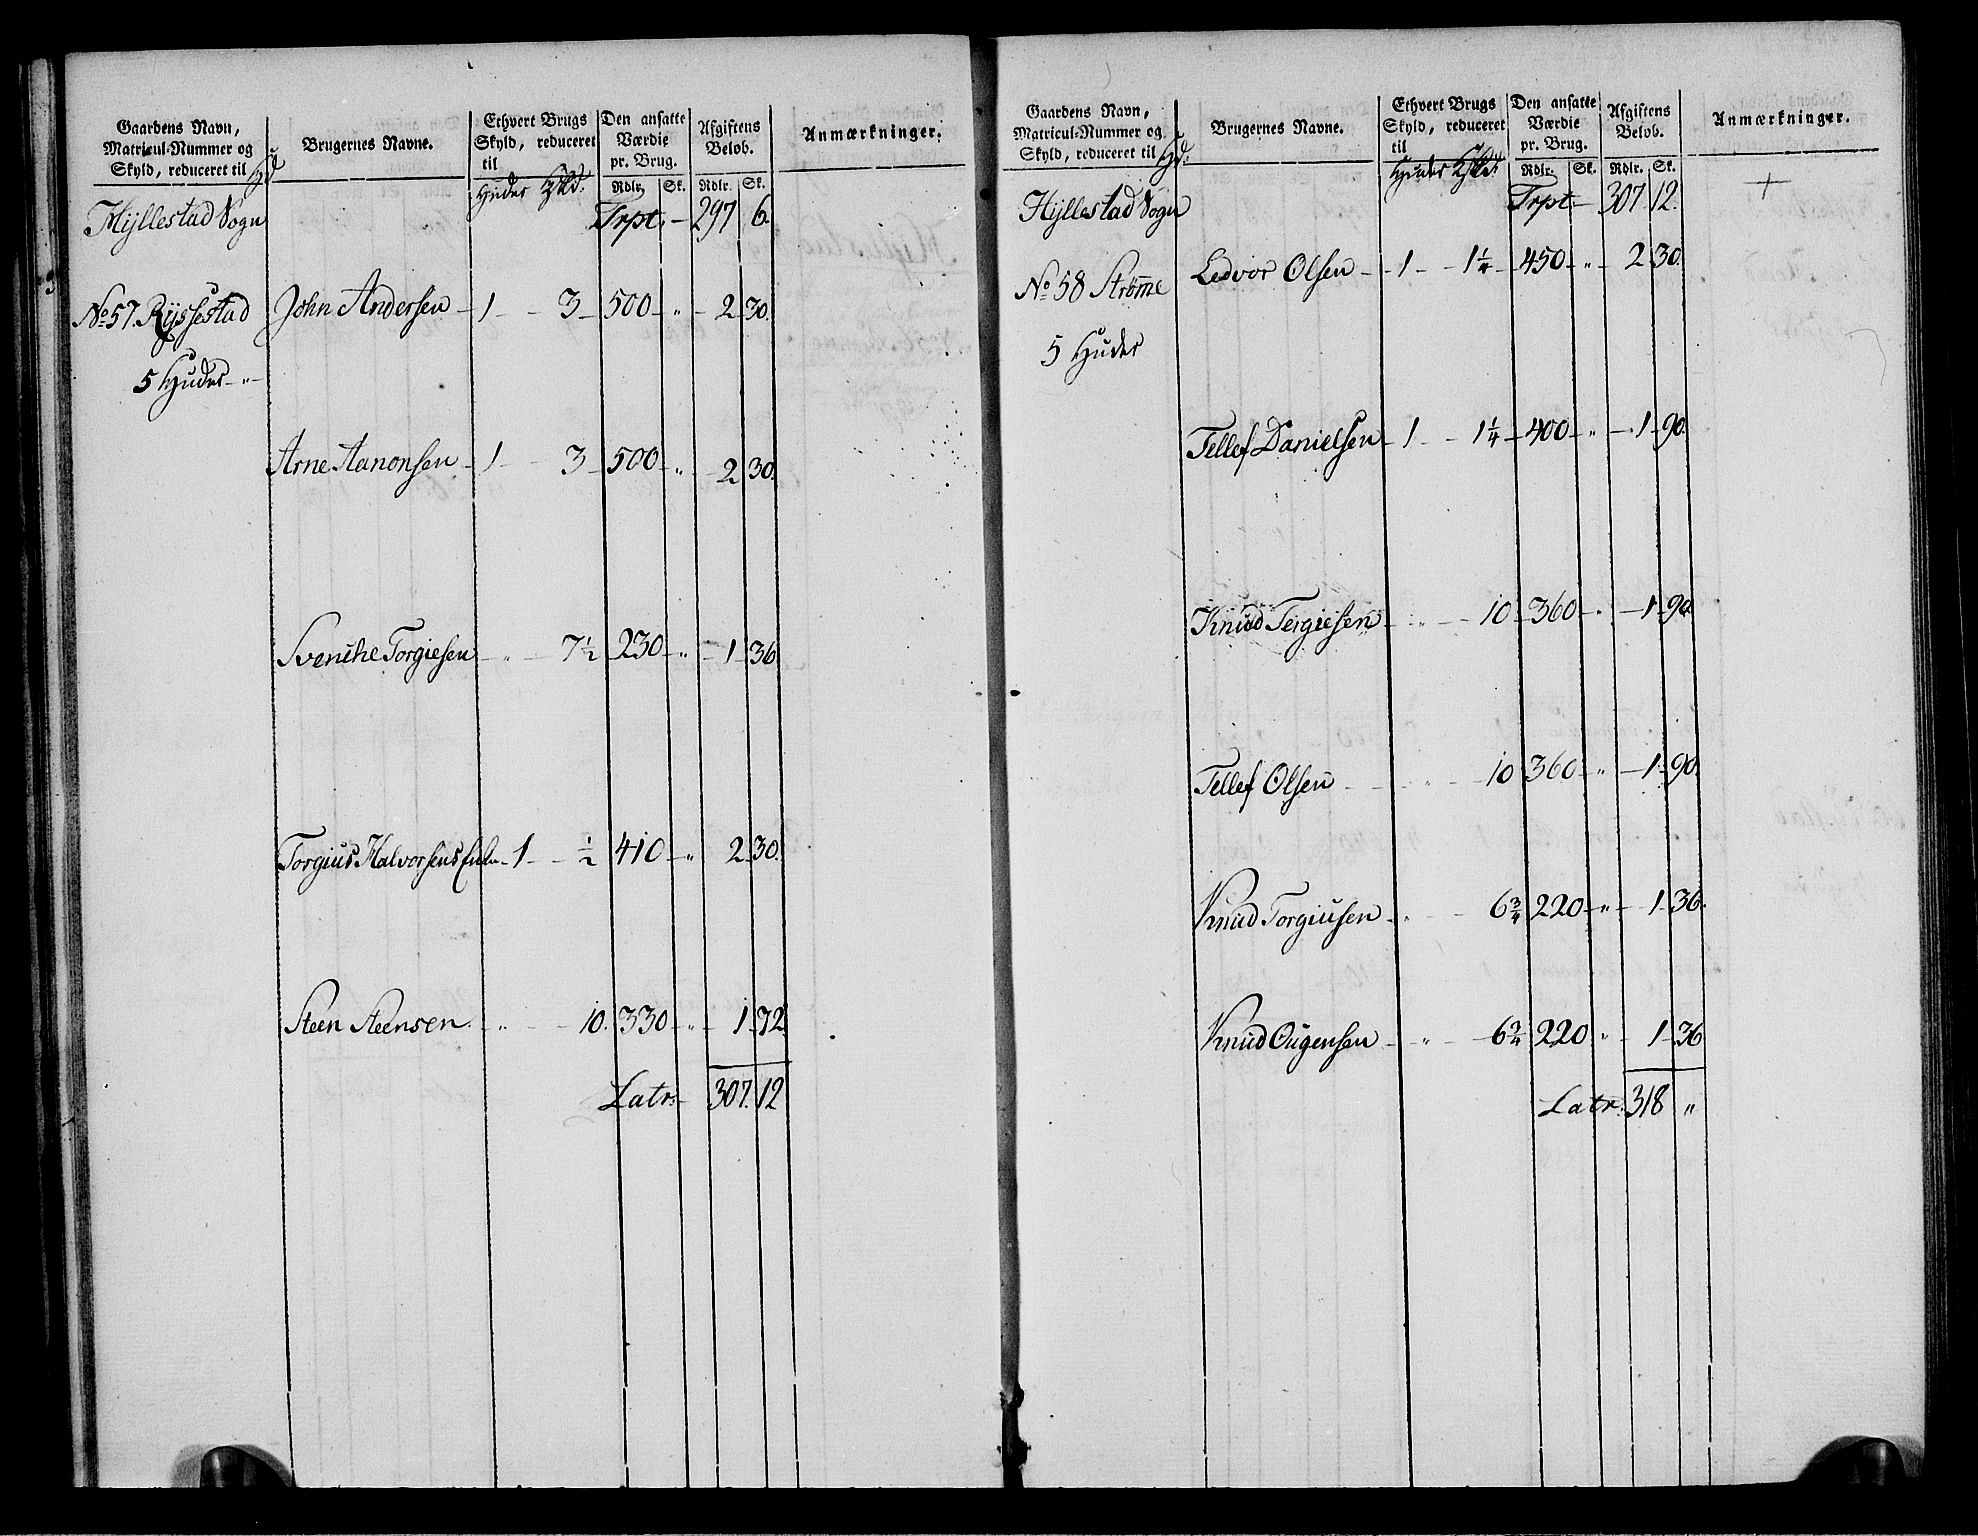 Gaardens Navn, Matricul-Nummer og Skyld, reduceret til Hd | Brugernes Navne. | Ethvert Brugs Skyld, reduceret til Huder | Den ansatte Værdie pr. Brug. Rdlr. Sk. | Afgiftens Beløb. Rdlr. Sk. | Anmærkninger.
Hyllestad Sogn Trpt. 297 6.
No 57. Ryssestad John Andersen 1 3 500 " 2 30.
5 Huder "
Arne Aanonsen 1 3 500 " 2 30.
Svenche Torgiesen " 7½ 230 " 1 36
Torgius Halvorsens Enke 1 ½ 410 " 2 30.
Steen Steensen " 10. 330 " 1 72
Latr. 307. 12
Gaardens Navn, Matricul-Nummer og Skyld, reduceret til Hd. | Brugernes Navne. | Ethvert Brugs Skyld, reduceret til Huder | Den ansatte Værdie pr. Brug. Rdlr. Sk. | Afgiftens Beløb. Rdlr. Sk. | Anmærkninger.
Hyllestad Sogn Trpt. 307 12. +
No 58 Strømme Ledvor Olsen 1 1¼ 450 " 2 30.
5 Huder
Tellef Danielsen 1 1¼ 400 " 1 90.
Knud Tergiesen " 10 360 " 1 90.
Tellef Olsen " 10 360 " 1 90.
Knud Torgiusen " 6¾ 220 " 1 36.
Knud Ougensen " 6¾ 220 " 1 36
Latr. 318 "